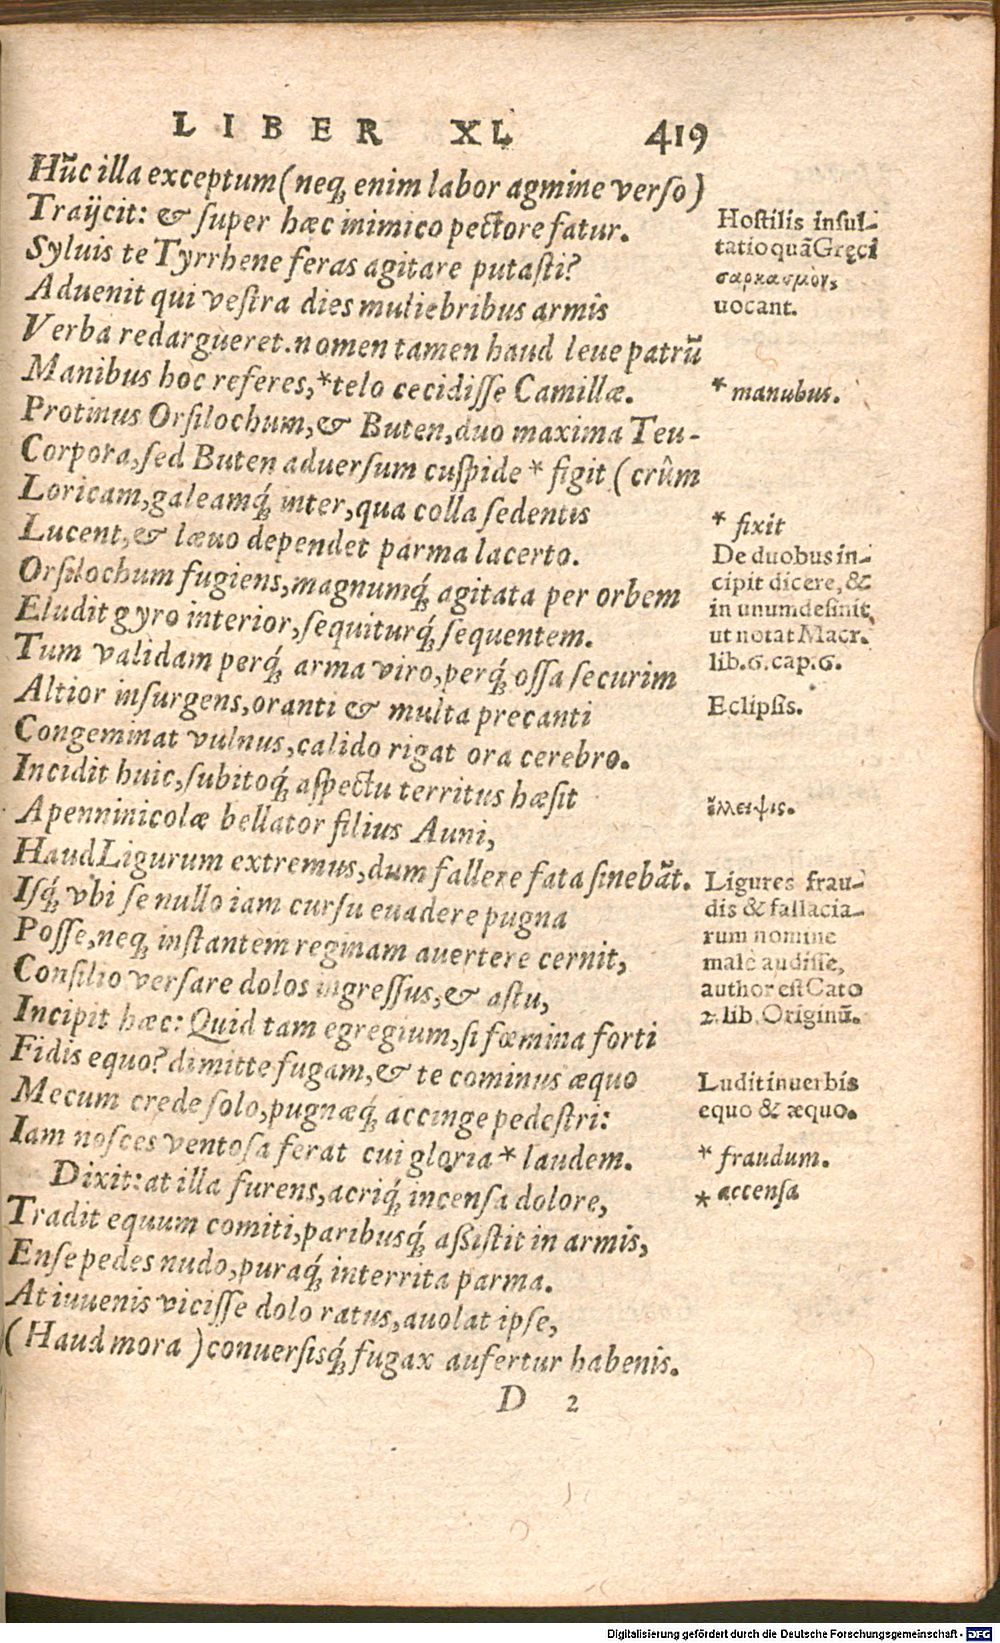 LIBER XL 419
Hũc illa exceptum (neq; enim labor agmine verso)
Traijcit: & super hæc inimico pectore fatur.
Syluis te Tyrrhene feras agitare putasti?
Aduenit qui vestra dies muliebribus armis
Verba redargueret. nomen tamen haud leue patrũ
Manibus hoc referes, *telo cecidisse Camillæ.
Protinus Orsilochum, & Buten, duo maxima Teu-
Corpora, sed Buten aduersum cuspide * figit (crûm
Loricam, galeamq́; inter, qua colla sedentis
Lucent, & læuo dependet parma lacerto.
Orsilochum fugiens, magnumq́; agitata per orbem
Eludit gyro interior, sequiturq́; sequentem.
Tum validam perq́; arma viro, perq́; ossa securim
Altior insurgens, oranti & multa precanti
Congeminat vulnus, calido rigat ora cerebro.
Incidit huic, subitoq́; aspectu territus hæsit
Apenninicolæ bellator filius Auni,
Haud Ligurum extremus, dum fallere fata sinebãt.
Isq́; vbi se nullo iam cursu euadere pugna
Posse, neq; instantem reginam auertere cernit,
Consilio versare dolos ingressus, & astu,
Incipit hæc: Quid tam egregium, si fœmina forti
Fidis equo? dimitte fugam, & te cominus æquo
Mecum crede solo, pugnæq́; accinge pedestri:
Iam nosces ventosa ferat cui gloria * laudem.
Dixit: at illa furens, acriq́; incensa dolore,
Tradit equum comiti, paribusq́; assistit in armis,
Ense pedes nudo, puraq́; interrita parma.
At iuuenis vicisse dolo ratus, auolat ipse,
(Haud mora) conuersisq́; fugax aufertur habenis.
D 2
Hostilis insul-
tatio quã Gręci
σαρκασμὸν,
uocant.
* manubus.
* fixit
De duobus in-
cipit dicere, &
in unum desinit,
ut notat Macr.
lib. 6. cap. 6.
Eclipsis.
ἔλλειψις.
Ligures frau-
dis & fallacia-
rum nomine
male audisse,
author est Cato
2. lib. Originũ.
Ludit in uerbis
equo & æquo.
* fraudum.
* accensa
Digitalisierung gefördert durch die Deutsche Forschungsgemeinschaft - DFG